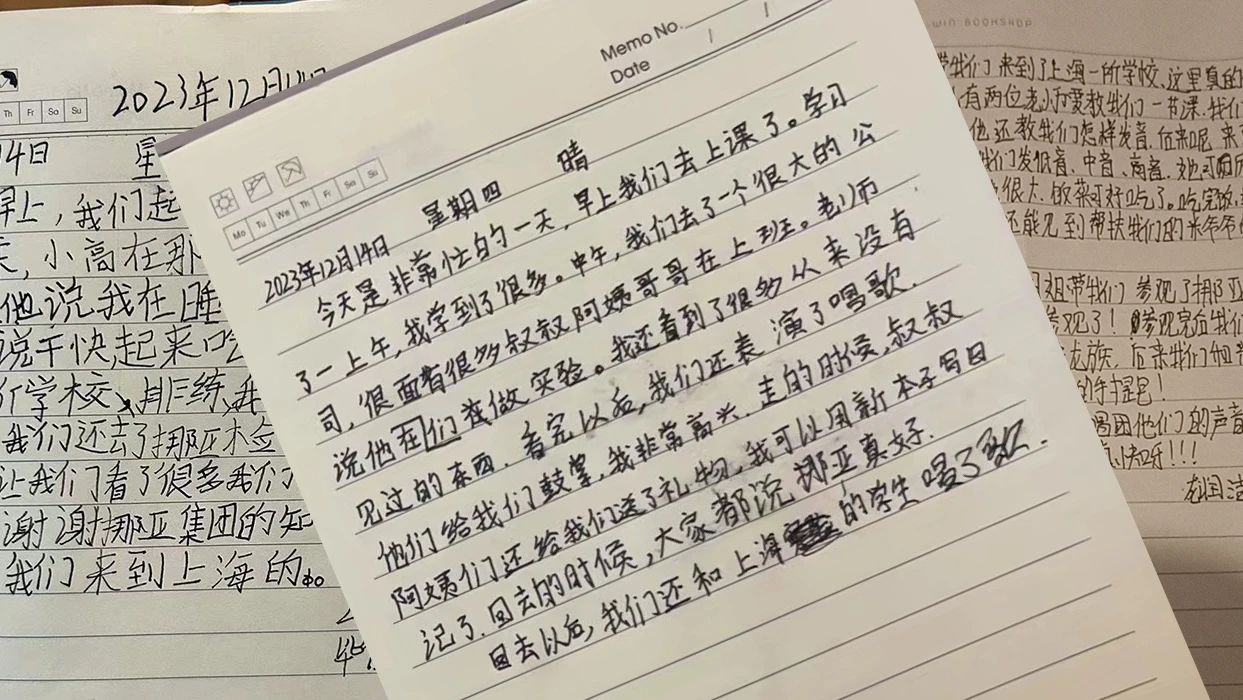 Th Fr Sa Su
2023年12月14日
4日 星
早上，我们起
天，小高在那
他说我在睡
说干快起来
学校、排练，我
我们还去了挪亚木
让我们看了很多我们
谢谢挪亚集团的
我们来到上海的
Memo No.
Date
Mo Tu We Th Fr Sa Su
2023年12月14日 星期四 晴
今天是非常忙的一天，早上我们去上课了。学习
了一上午，我学到了很多。中午，我们去了一个很大的公
司，很面有很多叔叔阿姨哥哥在上班。老师
说他在们在做实验。我还看到了很多从来没有
见过的东西。看完以后，我们还表演了唱歌.
他们给我们鼓掌，我非常高兴. 走的时候，叔叔
阿姨们还给我们送了礼物，我可以用新本子写日
记了. 回去的时候，大家都说挪亚真好.
回去以后，我们还和上海的学生唱了歌.
WIN BOOKSHOP
带我们来到了上海一所学校，这里真的
有两位老师要教我们一节课.我们
他还教我们怎样发音.后来呢
我们发低音、中音、高音.
很大.饭菜可好吃了.吃完饭
还能见到帮扶我们的
姐带我们参观了挪亚
参观了！参观完后我们
龙族，后来我们
唱团他们的声音